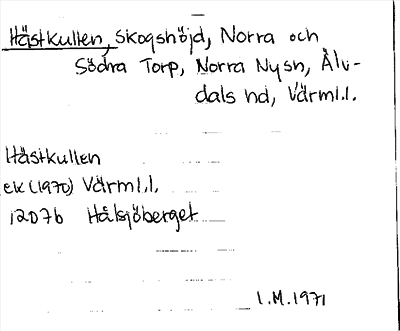 Hästkullen, skogshöjd, Norra och
Södra Torp, Norra Nysn, Älv-
dals hd, Värml.l.
Hästkullen
ek (1970) Värml.l.
12D7b Hålsjöberget
I.M.1971